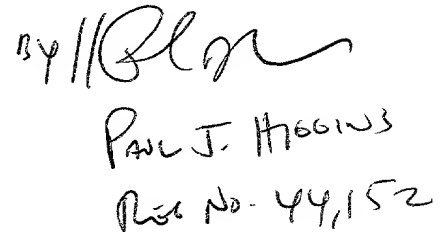 By //
PAUL J. HIGGINS
REG NO. 44,152